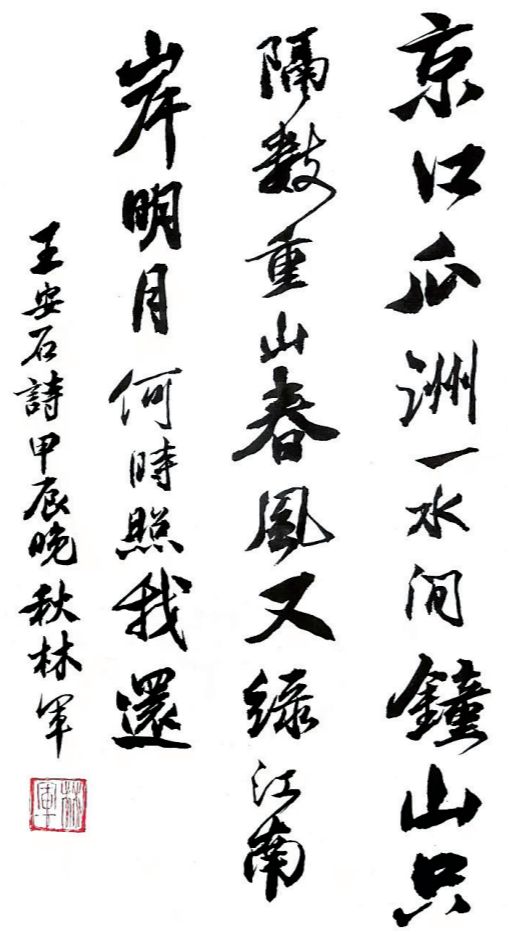 京口瓜洲一水间鐘山只
隔数重山春風又绿江南
岸明月何時照我還
王安石詩甲辰晚秋林军
林軍